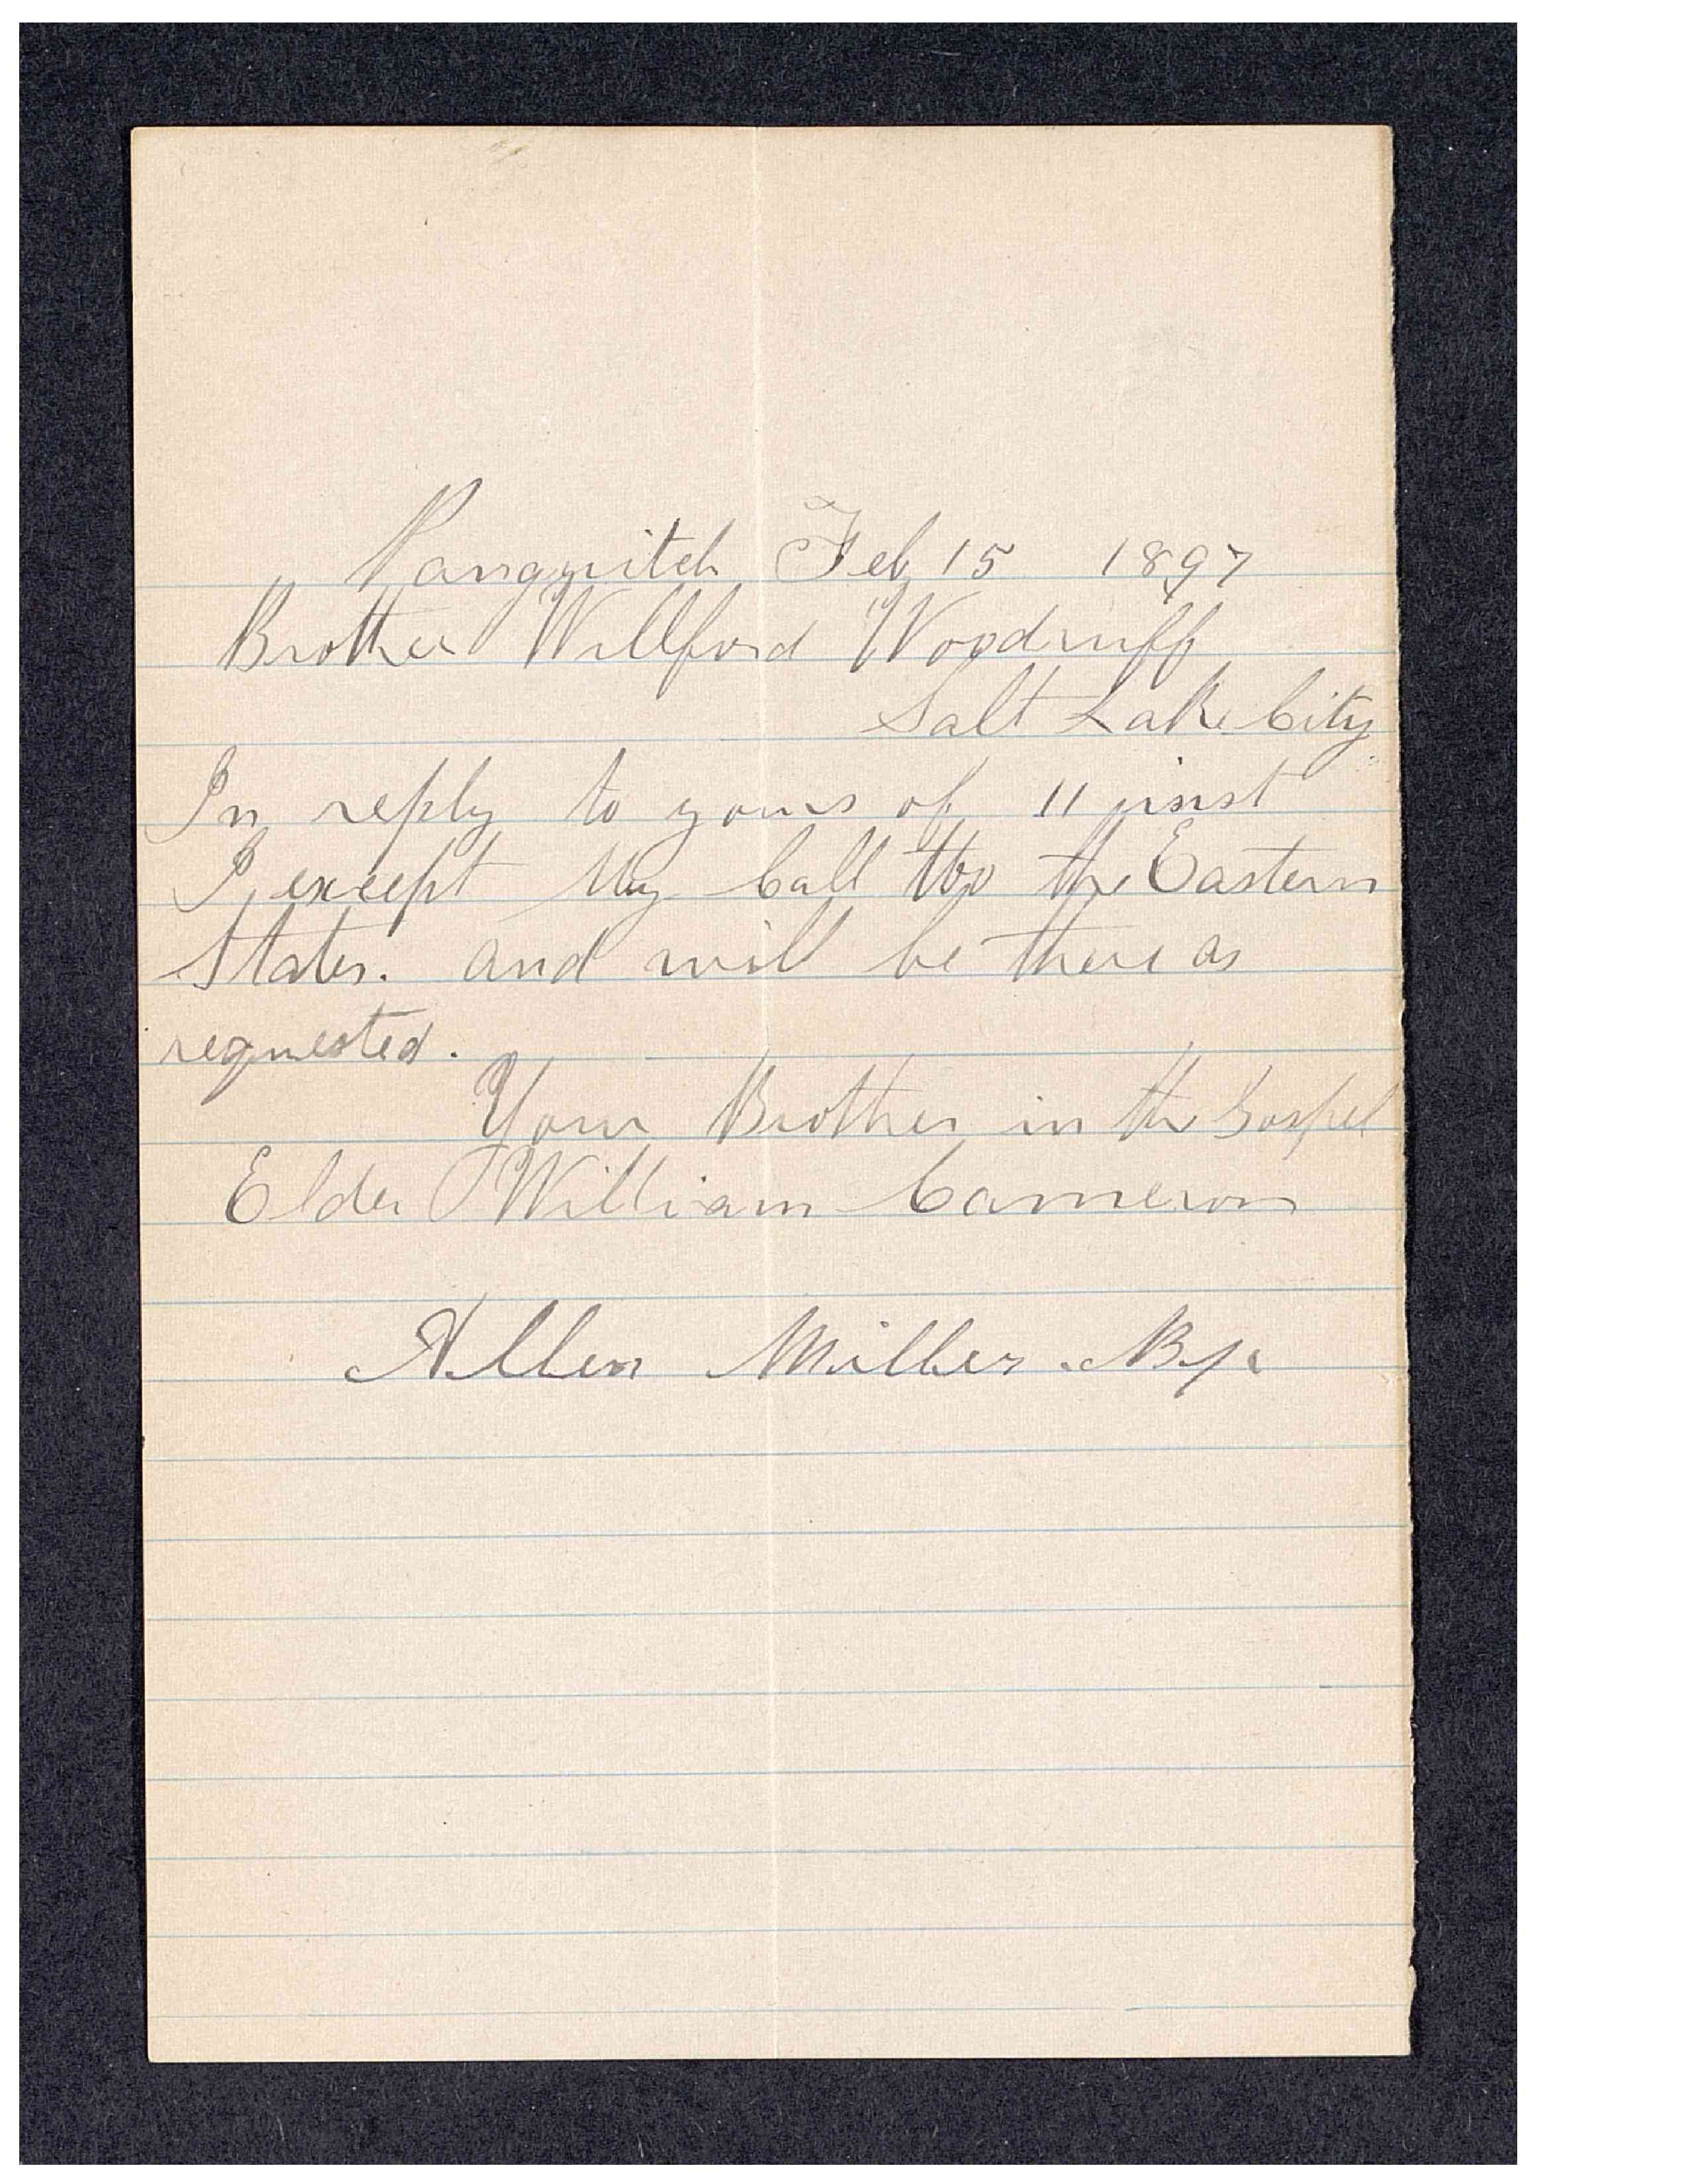 Panguitch Feb 15 1897
Brother Willford Woodruff
Salt Lake City
In reply to yours of 11 inst
I except My Call too the Eastern
States. and will be there as
requested.
Your Brother in the Gospel
Elder William Cameron
Allen Miller. Bp.